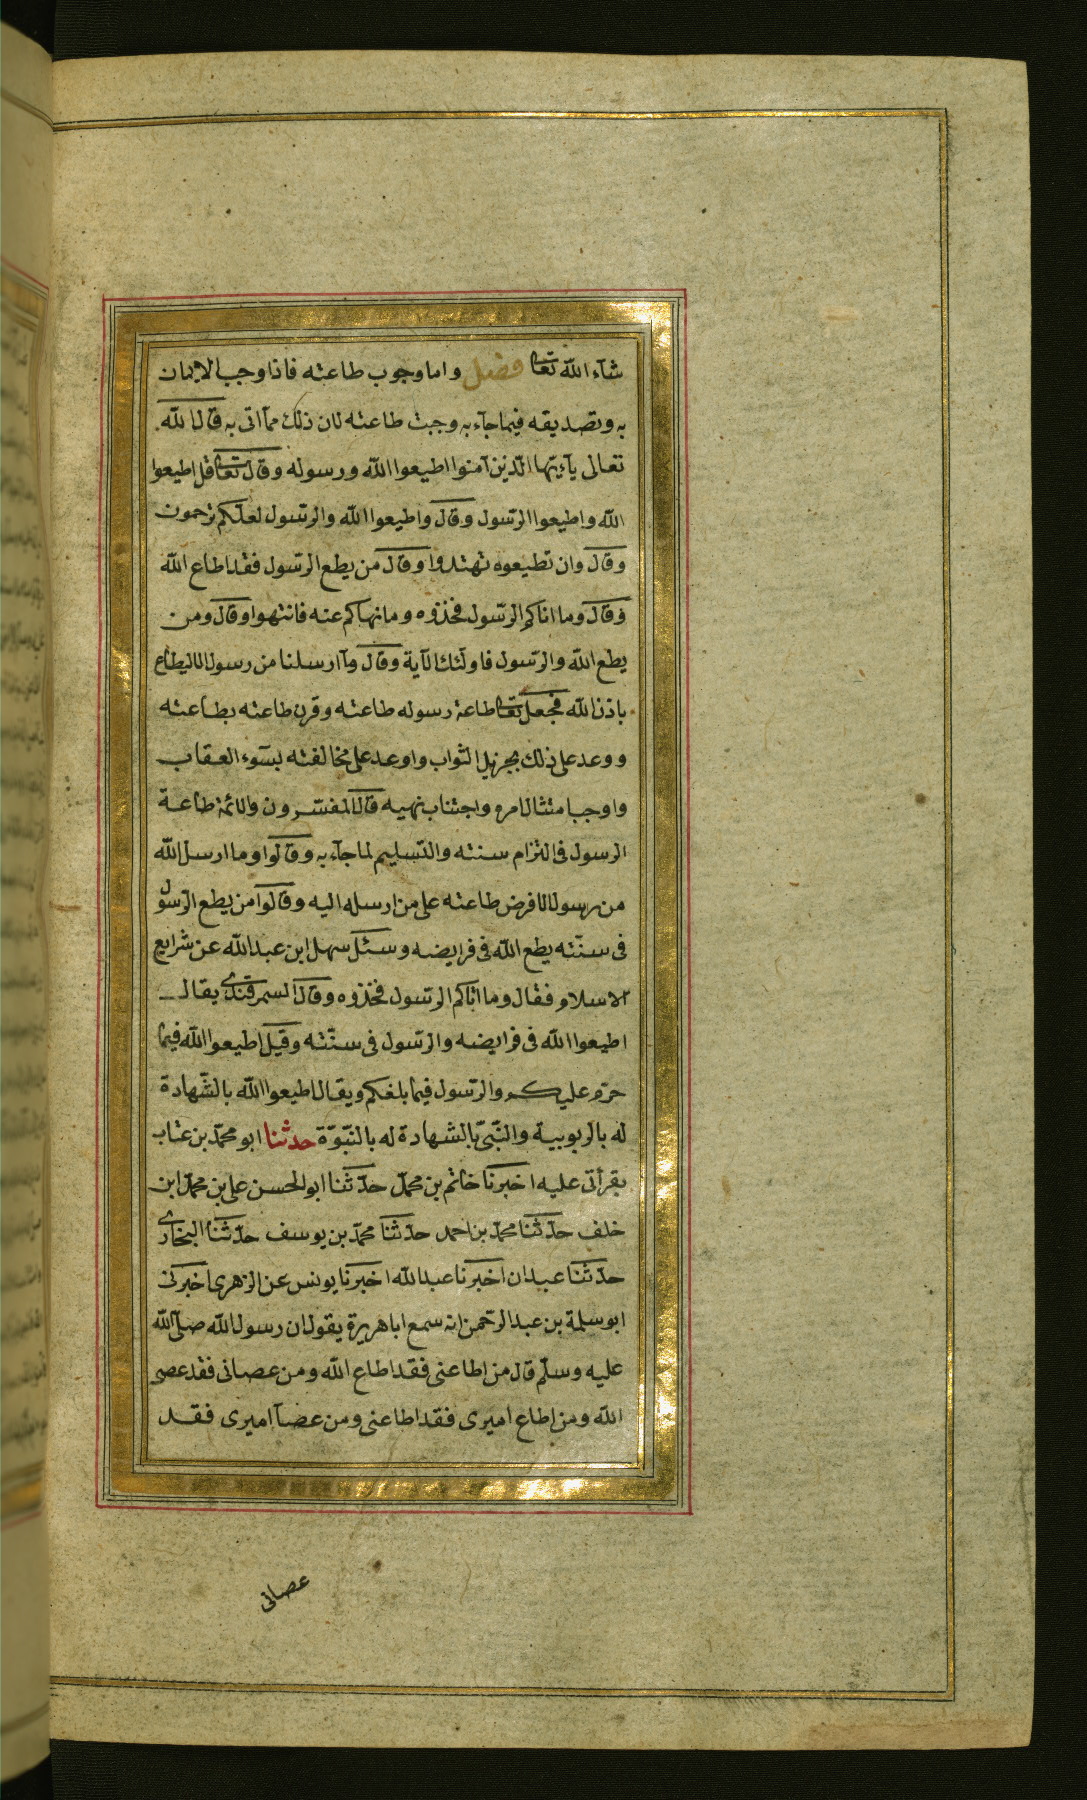 شآء الله تعا فصل واما وجوب طاعته فاذا وجب الايمان
به وتصديقه فيما جآء به وجبت طاعته لان ذلك مما اتى به قال الله
تعالى يآءيّها الّذين آمنوا اطيعوا الله ورسوله وقال تعا قل اطيعوا
الله واطيعوا الرّسول وقال واطيعوا الله والرّسول لعلّكم ترحمون
وقال وان تطيعوه تهتدوا وقال من يطع الرّسول فقد اطاع الله
وقال وما اتاكم الرّسول فخذوه وما نهاكم عنه فانتهوا وقال ومن
يطع الله والرّسول فاولئك الآية وقال ومآ ارسلنا من رسول الا ليطاع
باذن الله فجعل تعا طاعة رسوله طاعته وقرن طاعته بطاعته
ووعد على ذلك بجزيل الثواب واوعد على مخالفته بسوء العقاب
واوجب امتثال امره واجتناب نهيه قال المفسّرون والائمة طاعة
الرسول فى التزام سنته والتّسليم لما جآء به وقالوا وما ارسل الله
من رسول الا فرض طاعته على من ارسله اليه وقالوا من يطع الرّسول
فى سنّته يطع الله فى فرايضه وسئل سهل ابن عبد الله عن شرايع
الاسلام فقال وما اتاكم الرّسول فخذوه وقال السمرقندى يقال
اطيعوا الله فى فرايضه والرّسول فى سنّته وقيل اطيعوا الله فيما
حرّم عليكم والرّسول فيما بلغكم ويقال اطيعوا الله بالشّهادة
له بالربوبية والنّبىّ بالشهادة له بالنّبوّة حدثنا ابو محمّد بن عتاب
بقرأتى عليه اخبرنا خاتم بن محمّد حدّثنا ابو الحسن على بن محمّد ابن
خلف حدّثنا محمّد بن احمد حدّثنا محمّد بن يوسف حدّثنا البخارى
حدّثنا عبدان اخبرنا عبد الله اخبرنا يونس عن الزهرى اخبرنى
ابو سلمة بن عبد الرّحمن انه سمع ابا هريرة يقول ان رسول الله صلّى الله
عليه وسلّم قال من اطاعنى فقد اطاع الله ومن عصانى فقد عصى
الله ومن اطاع اميرى فقد اطاعنى ومن عصآ اميرى فقد
عصانى